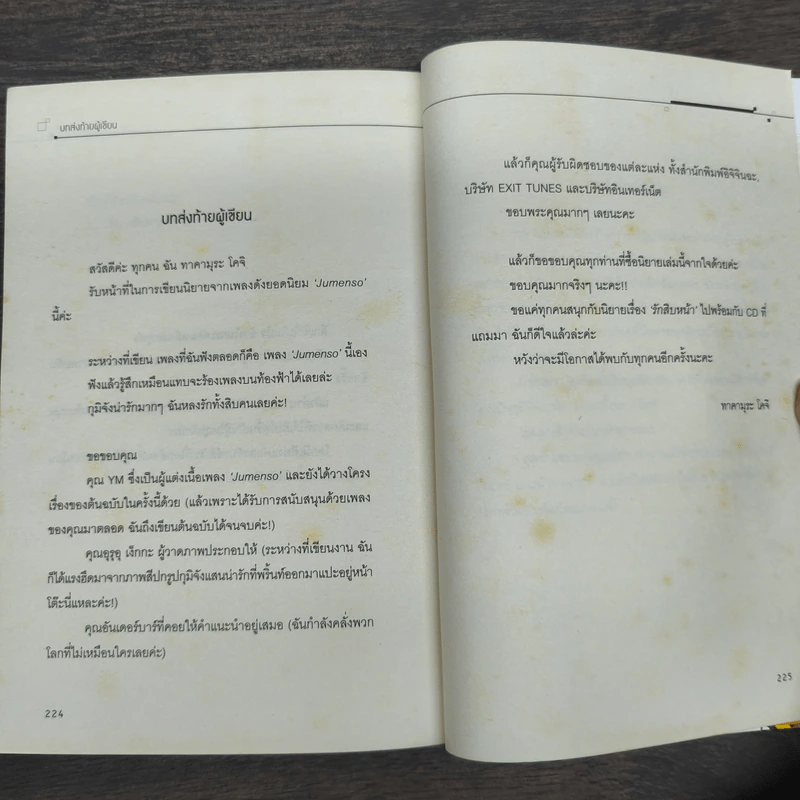 บทส่งท้ายผู้เขียน
บทส่งท้ายผู้เขียน
สวัสดีค่ะ ทุกคน ฉัน ทาคามุระ โคจิ
รับหน้าที่ในการเขียนนิยายจากเพลงดังยอดนิยม ‘Jumenso’
นี้ค่ะ
ระหว่างที่เขียน เพลงที่ฉันฟังตลอดก็คือ เพลง ‘Jumenso’ นี้เอง
ฟังแล้วรู้สึกเหมือนแทบจะร้องเพลงบนท้องฟ้าได้เลยล่ะ
กุมิจังน่ารักมากๆ ฉันหลงรักทั้งสิบคนเลยค่ะ!
ขอขอบคุณ
คุณ YM ซึ่งเป็นผู้แต่งเนื้อเพลง ‘Jumenso’ และยังได้วางโครง
เรื่องของต้นฉบับในครั้งนี้ด้วย (แล้วเพราะได้รับการสนับสนุนด้วยเพลง
ของคุณมาตลอด ฉันถึงเขียนต้นฉบับได้จนจบค่ะ!)
คุณอุรุอุ เง็กกะ ผู้วาดภาพประกอบให้ (ระหว่างที่เขียนงาน ฉัน
ก็ได้แรงฮึดมาจากภาพสีปกรูปกุมิจังแสนน่ารักที่พริ้นท์ออกมาแปะอยู่หน้า
โต๊ะนี่แหละค่ะ!)
คุณอันเดอร์บาร์ที่คอยให้คำแนะนำอยู่เสมอ (ฉันกำลังคลั่งพวก
โลกที่ไม่เหมือนใครเลยค่ะ)
224
แล้วก็คุณผู้รับผิดชอบของแต่ละแห่ง ทั้งสำนักพิมพ์อิจิจินฉะ,
บริษัท EXIT TUNES และบริษัทอินเทอร์เน็ต
ขอบพระคุณมากๆ เลยนะคะ
แล้วก็ขอขอบคุณทุกท่านที่ซื้อนิยายเล่มนี้จากใจด้วยค่ะ
ขอบคุณมากจริงๆ นะคะ!!
ขอแค่ทุกคนสนุกกับนิยายเรื่อง ‘รักสิบหน้า’ ไปพร้อมกับ CD ที่
แถมมา ฉันก็ดีใจแล้วล่ะค่ะ
หวังว่าจะมีโอกาสได้พบกับทุกคนอีกครั้งนะคะ
ทาคามุระ โคจิ
225